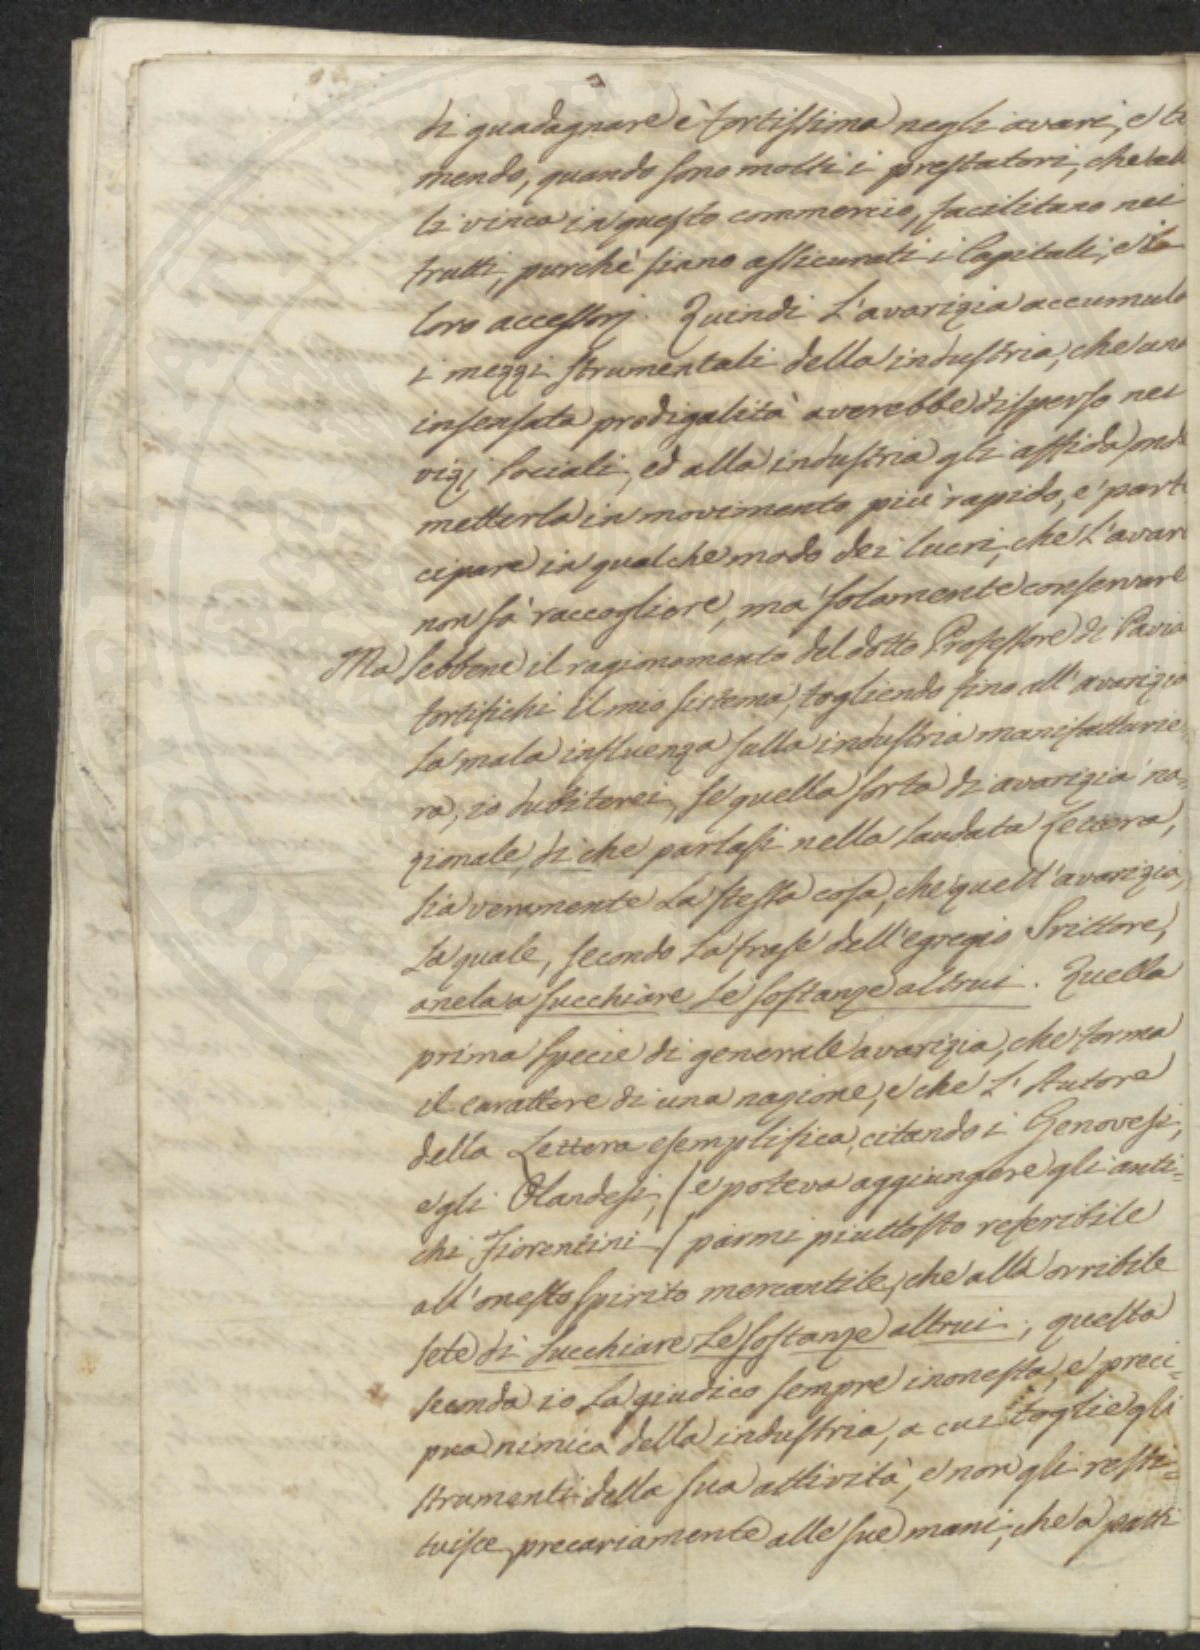 di guadagnare è fortissima negli avari, e te
mendo, quando sono molti i prestatori, che
li vinca in questo commercio, facilitano nei
frutti, purchè siano assicurati i Capitali, e i
loro accessorj. Quindi l'avarizia accumula
i mezzi strumentali della industria, che una
insensata prodigalità averebbe disperso nei
vizj sociali, ed alla industria gli affida, onde
metterla in movimento più rapido, e parte
cipare in qualche modo dei lucri, che l'avaro
non sà raccogliere, mà solamente conservare
Ma sebbene il ragionamento del dotto Professore di Pavia
fortifichi il mio sistema, togliendo fino all'avarizia
la mala influenza sulla industria manifatturie=
ra, io dubiterei, se quella sorta di avarizia na=
zionale, di che parlasi nella laudata Lettera,
sia veramente la stessa cosa, che quell'avarizia,
la quale, secondo la frase dell'egregio Srittore,
anela a succhiare le sostanze altrui. Quella
prima specie di generale avarizia, che forma
il carattere di una nazione, e che l'Autore
della Lettera esemplifica, citando i Genovesi,
e gli Olandesi, (e poteva aggiungere gli anti=
chi Fiorentini) parmi piuttosto referibile
all'onesto spirito mercantile, che alla orribile
sete di succhiare le sostanze altrui; questa
seconda io la giudico sempre inonesta, e preci=
pua nimica della industria, a cui toglie gli
strumenti della sua attività, e non gli resti=
tuisce precariamente alle sue mani, che a patti